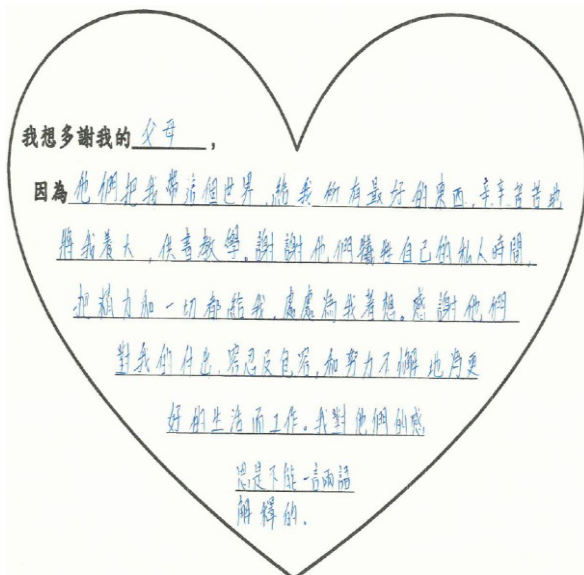 我想多謝我的父母，
因為他們把我帶這個世界，給我所有最好的東西，辛辛苦苦地
將我養大，供書教學。謝謝他們犧牲自己的私人時間，
把精力和一切都給我，處處為我着想。感謝他們
對我的付出、容忍及包容，和努力不懈地為更
好的生活而工作。我對他們的感
恩是不能一言兩語
解釋的。